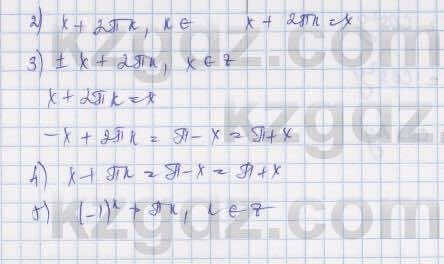 2) x + 2πk, k ∈ x + 2πk = x
3) ± x + 2πk, k ∈ z
x + 2πk = x
-x + 2πk = π - x = π + x
4) x + πk = π - x = π + x
5) (-1)^k + πk, k ∈ z
kzgdz.com
kzgdz.com
kzgdz.com